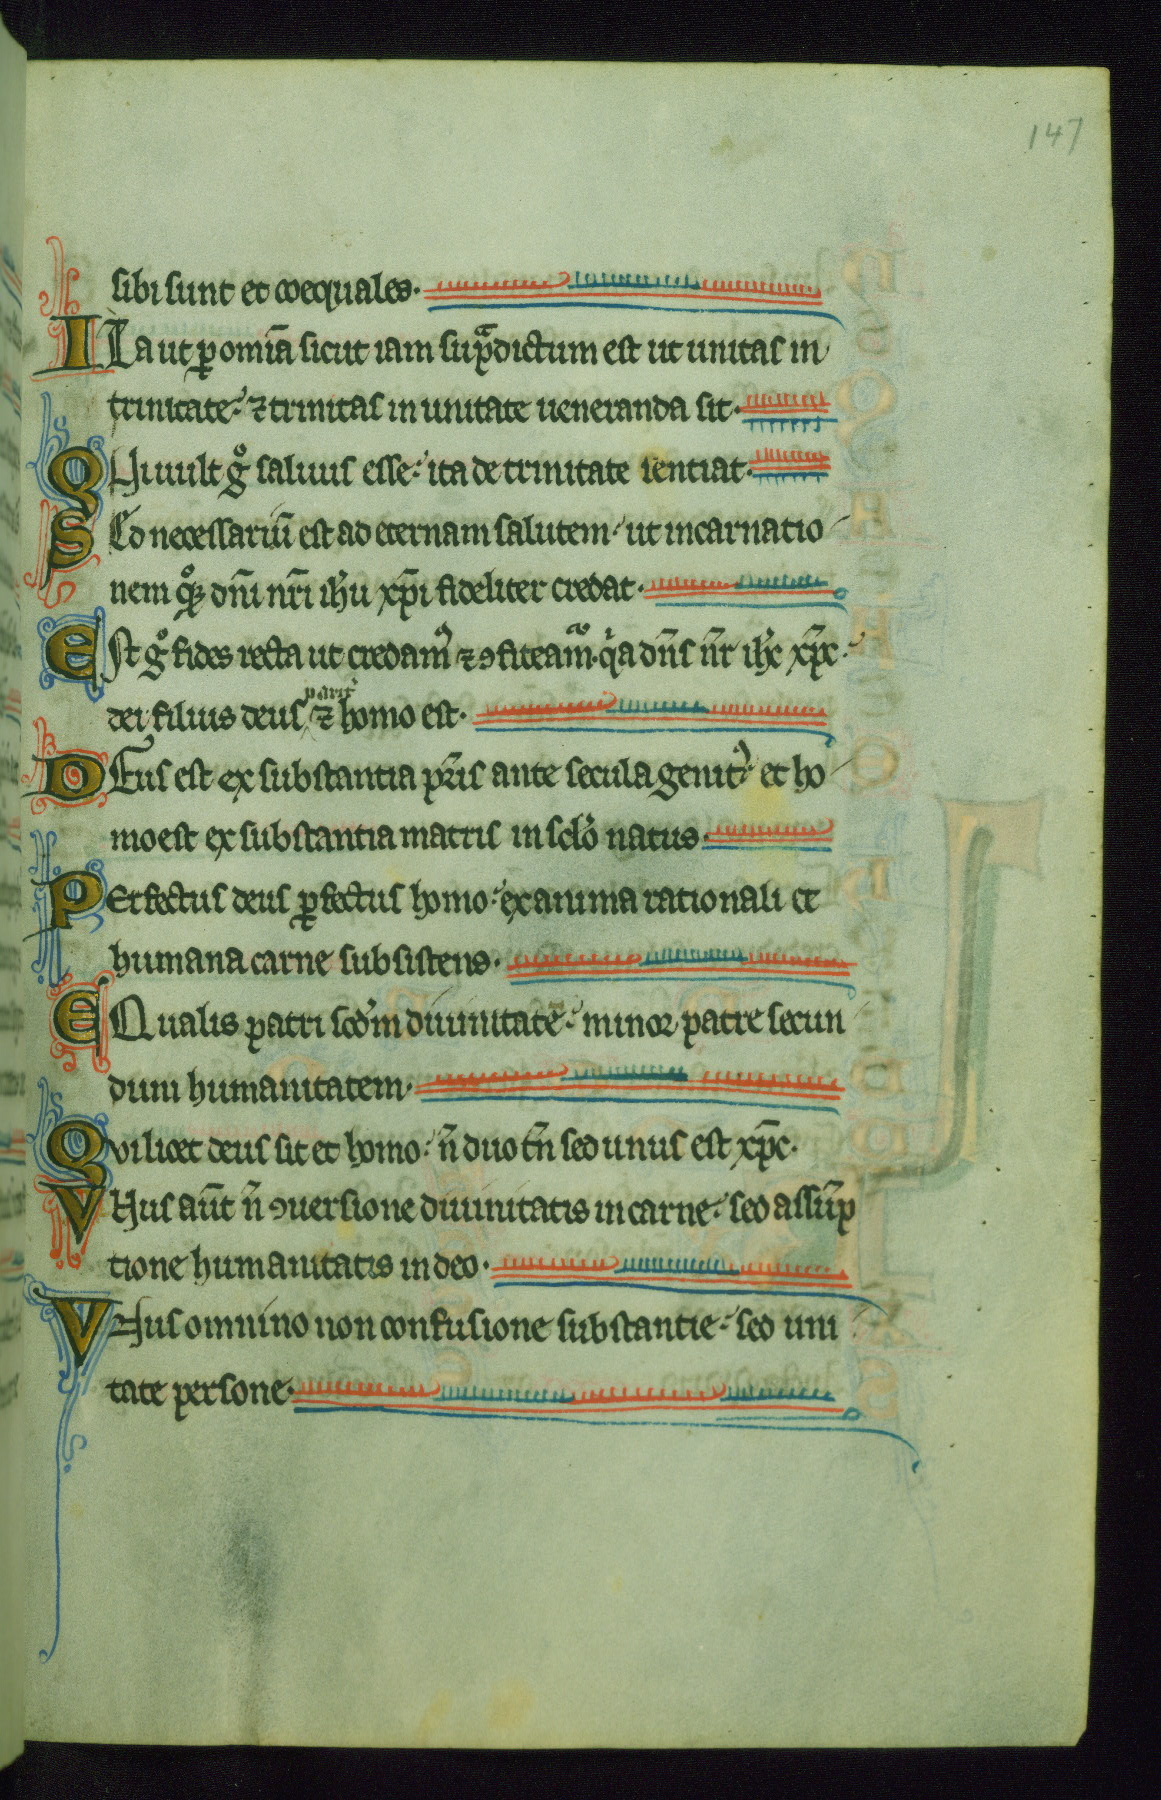 147
sibi sunt et coequales.
ITa ut ꝑ om̄ia sicut iam sup̄dictum est ut unitas in
trinitate. ⁊ trinitas in unitate ueneranda sit.
QUi uult gͦ saluus esse. ita de trinitate sentiat.
SEd necessariū est ad eternam salutem. ut incarnatio
nem qͦꝫ dn̄i nr̄i ih̄u xp̄i fideliter credat.
ESt gͦ fides recta ut credam᷒ ⁊ ꝯfiteam᷒. qͥa dn̄s nr̄ ih̄c xp̄c.
dei filius deus parit̄ ⁊ homo est.
DEus est ex substantia pr̄is ante secula genit᷒. et ho
mo est ex substantia matris in sclo᷒ natus.
PErfectus deus ꝑfectus homo. ex anima rationali et
humana carne subsistens.
EQualis patri scd᷒m diuinitatē. minor patre secun
dum humanitatem.
Qvi licet deus sit et homo. n̄ duo tn̄ sed unus est xp̄c.
VNus aūt n̄ ꝯuersione diuinitatis in carne. sed assūp
tione humanitatis in deo.
VNus omnino non confusione substantie. sed uni
tate persone.